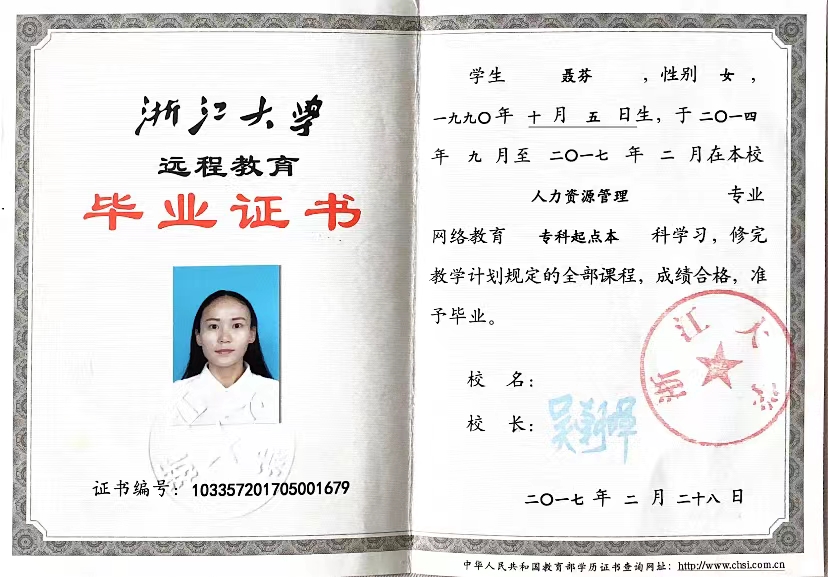 浙江大学
远程教育
毕业证书
证书编号：103357201705001679
学生 聂芬 ，性别 女 ，
一九九〇年 十 月 五 日生，于二〇一四
年 九 月至 二〇一七 年 二 月在本校
人力资源管理 专业
网络教育 专科起点本 科学习，修完
教学计划规定的全部课程，成绩合格，准
予毕业。
校 名：
浙江大学
校 长：
二〇一七 年 二 月 二十八 日
中华人民共和国教育部学历证书查询网址：http://www.chsi.com.cn